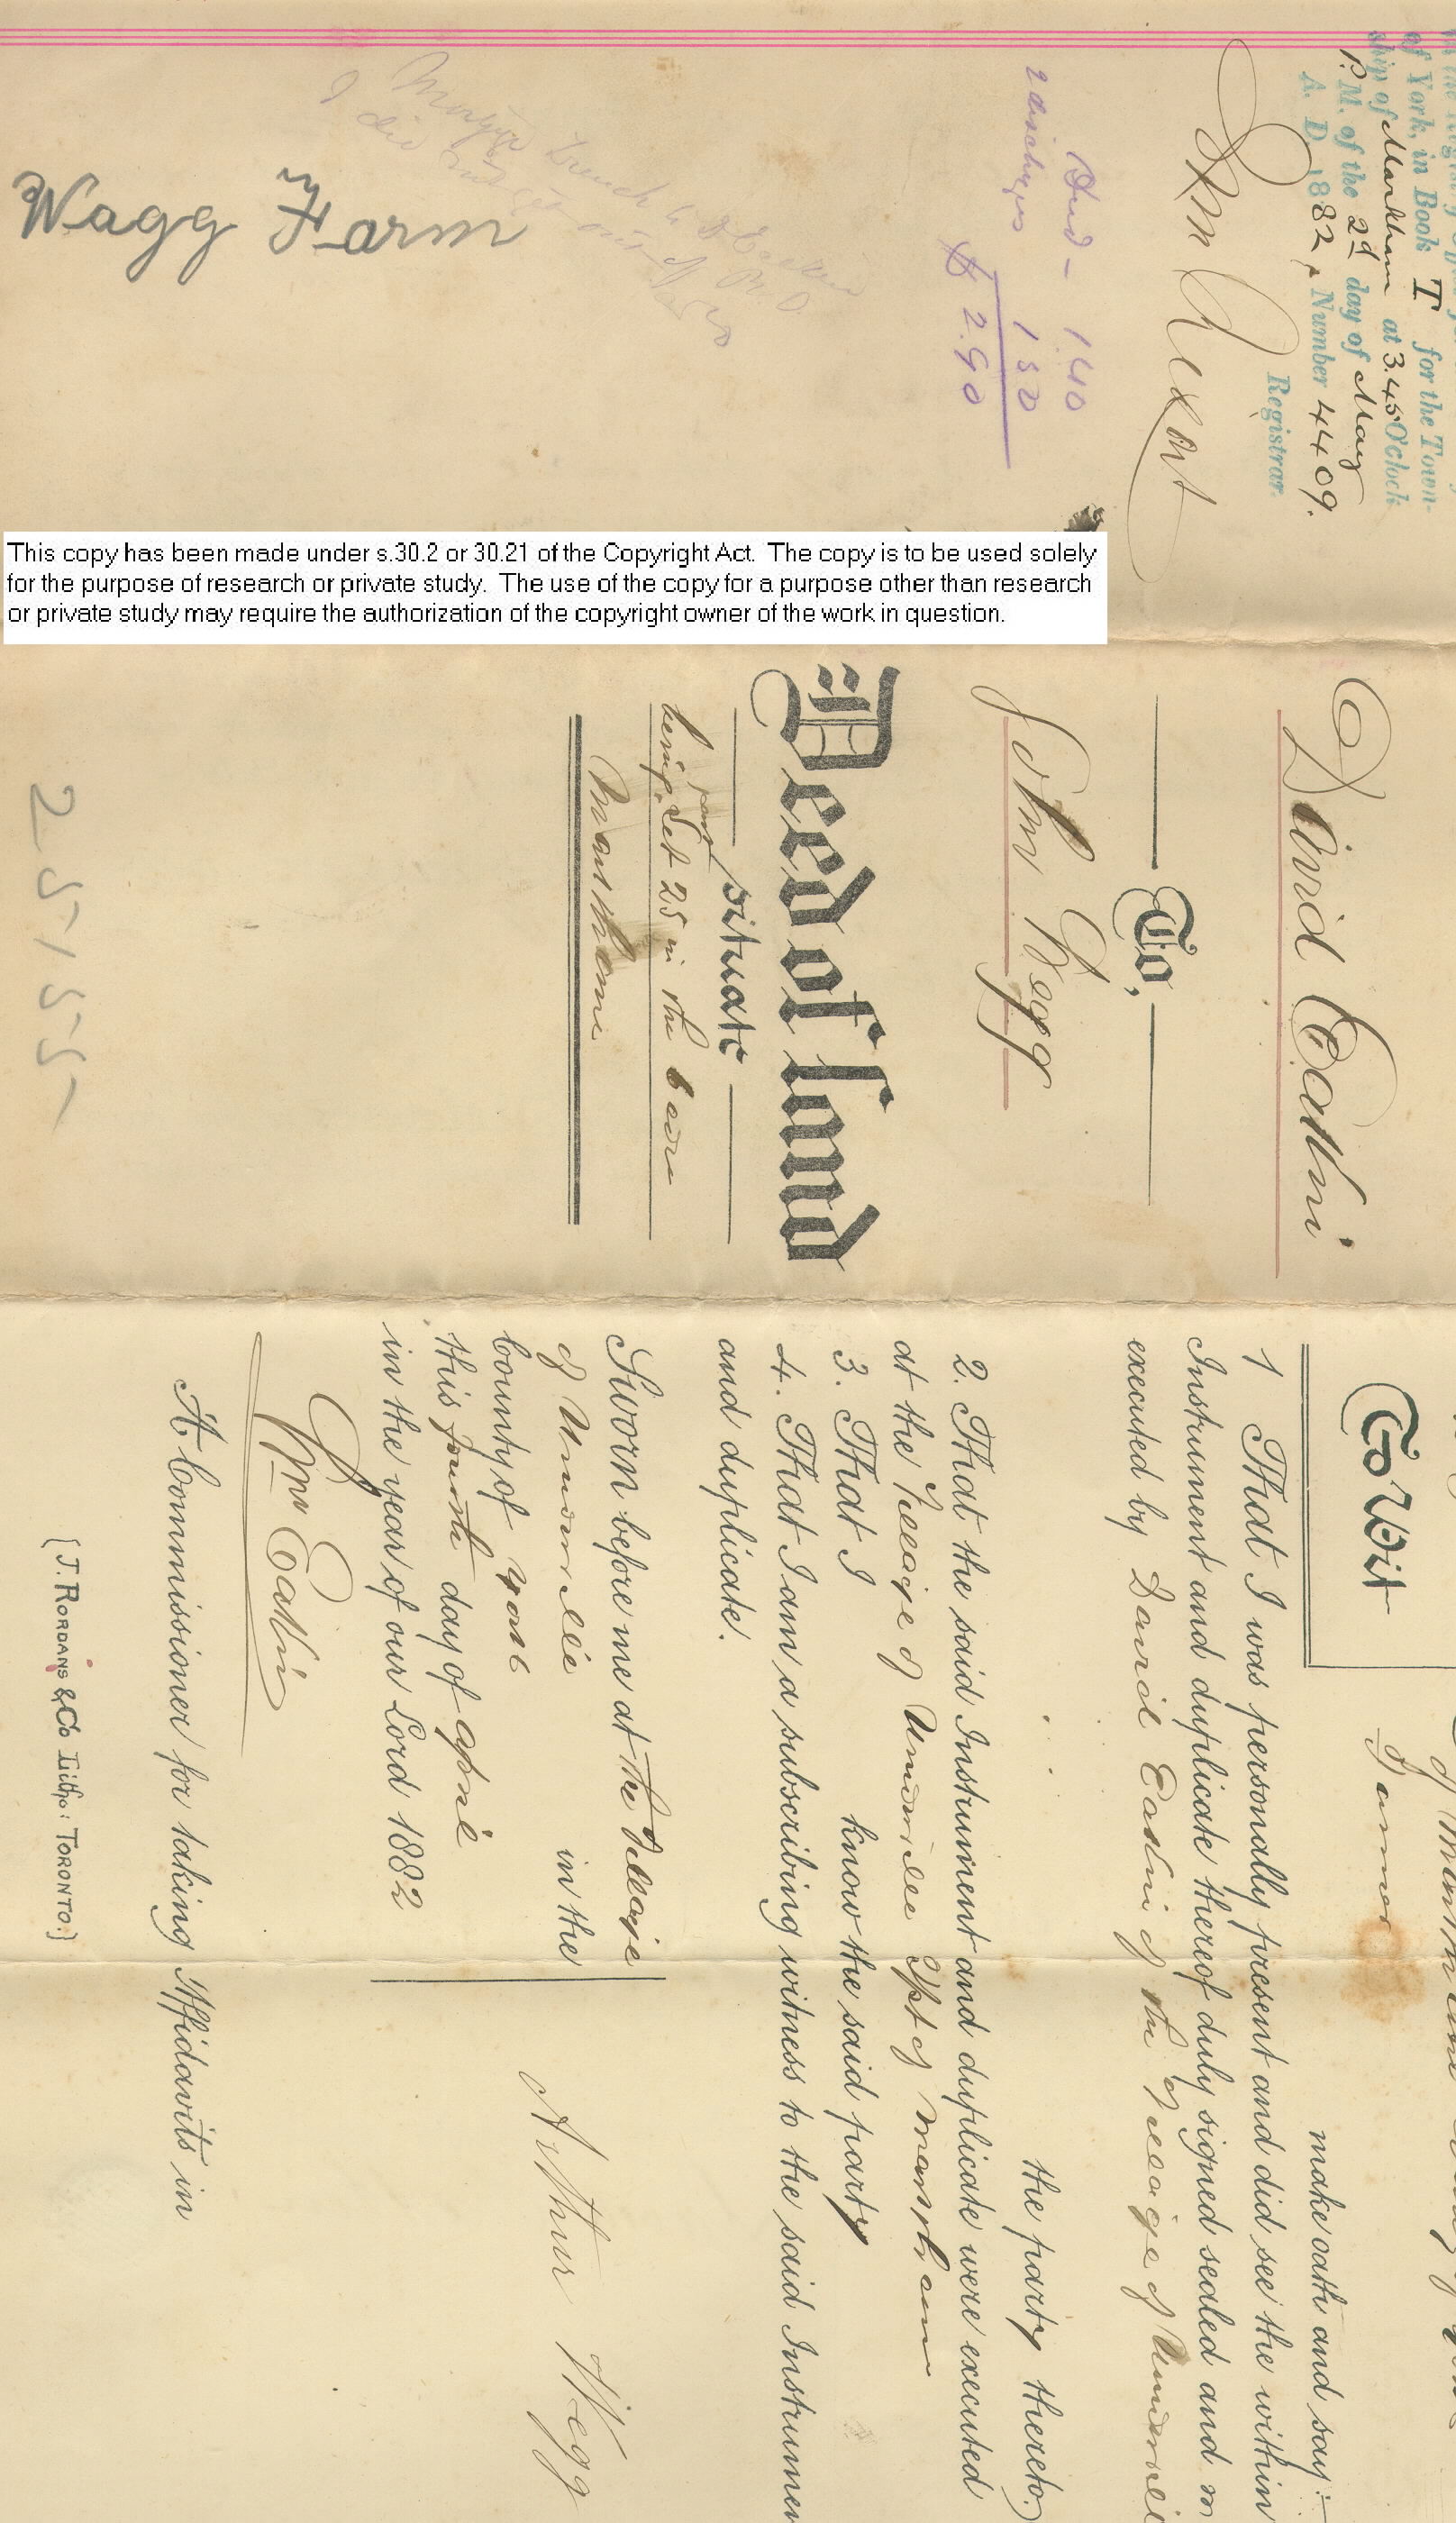 of York, in Book T for the Town-
ship of Markham at 3.45 O'clock
P.M. of the 2d day of May
A. D. 1882, Number 4409.
Registrar.
Deed - 1.40
2 dischges 1 50
$ 2.90
Wagg Farm
This copy has been made under s.30.2 or 30.21 of the Copyright Act. The copy is to be used solely
for the purpose of research or private study. The use of the copy for a purpose other than research
or private study may require the authorization of the copyright owner of the work in question.
David Eakin
To,
John Wegg
Deed of Land
situate
being part Lot 25 in the 6 con
Markham
25155
To Wit
Farmer
make oath and say :-
1 That I was personally present and did see the within
Instrument and duplicate thereof duly signed sealed and
executed by David Eakin of the Village of Unionville
the party thereto.
2. That the said Instrument and duplicate were executed
at the Village of Unionville of Markham
3. That I know the said party
4. That I am a subscribing witness to the said Instrumen
and duplicate.
Sworn before me at the Village
of Unionville in the
County of York
this fourth day of April
in the year of our Lord 1882
Wm Eakin
Arthur Wegg
A Commissioner for taking Affidavits in
{J. Rordans & Co Lith: Toronto.}